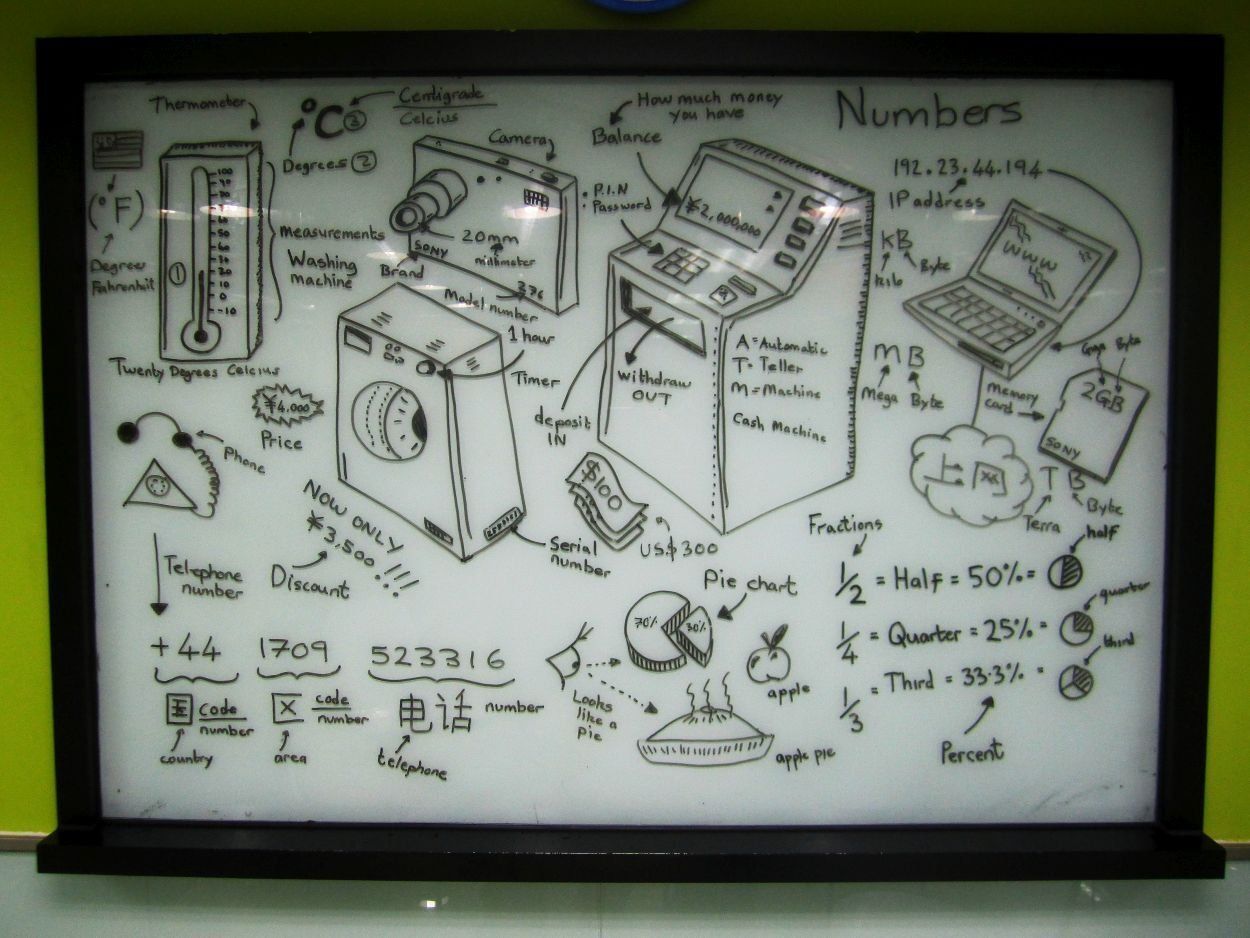 Numbers
Thermometer
°C ③
Centigrade
Celcius
Degrees ②
(°F)
Degree
Fahrenhit
100
90
80
70
60
50
40
30
20
10
0
-10
①
measurements
Twenty Degrees Celcius
Camera
20mm
millimeter
SONY
Brand
Model number
376
Washing
machine
1 hour
Timer
¥4,000
Price
NOW ONLY
¥3,500 !!!
Discount
Serial
number
How much money
you have
Balance
¥2,000,000
P.I.N
Password
Withdraw
OUT
deposit
IN
A = Automatic
T = Teller
M = Machine
Cash Machine
$100
US$300
192.23.44.194
IP address
www
KB
kilo
Byte
MB
Mega
Byte
Giga
Byte
2GB
SONY
memory
card
TB
Terra
Byte
Phone
Telephone
number
+44 1709 523316
国 code
number
country
区 code
number
area
电话 number
telephone
Pie chart
70%
30%
Looks
like a
Pie
apple
apple pie
Fractions
1/2 = Half = 50% =
half
1/4 = Quarter = 25% =
quarter
1/3 = Third = 33.3% =
third
Percent